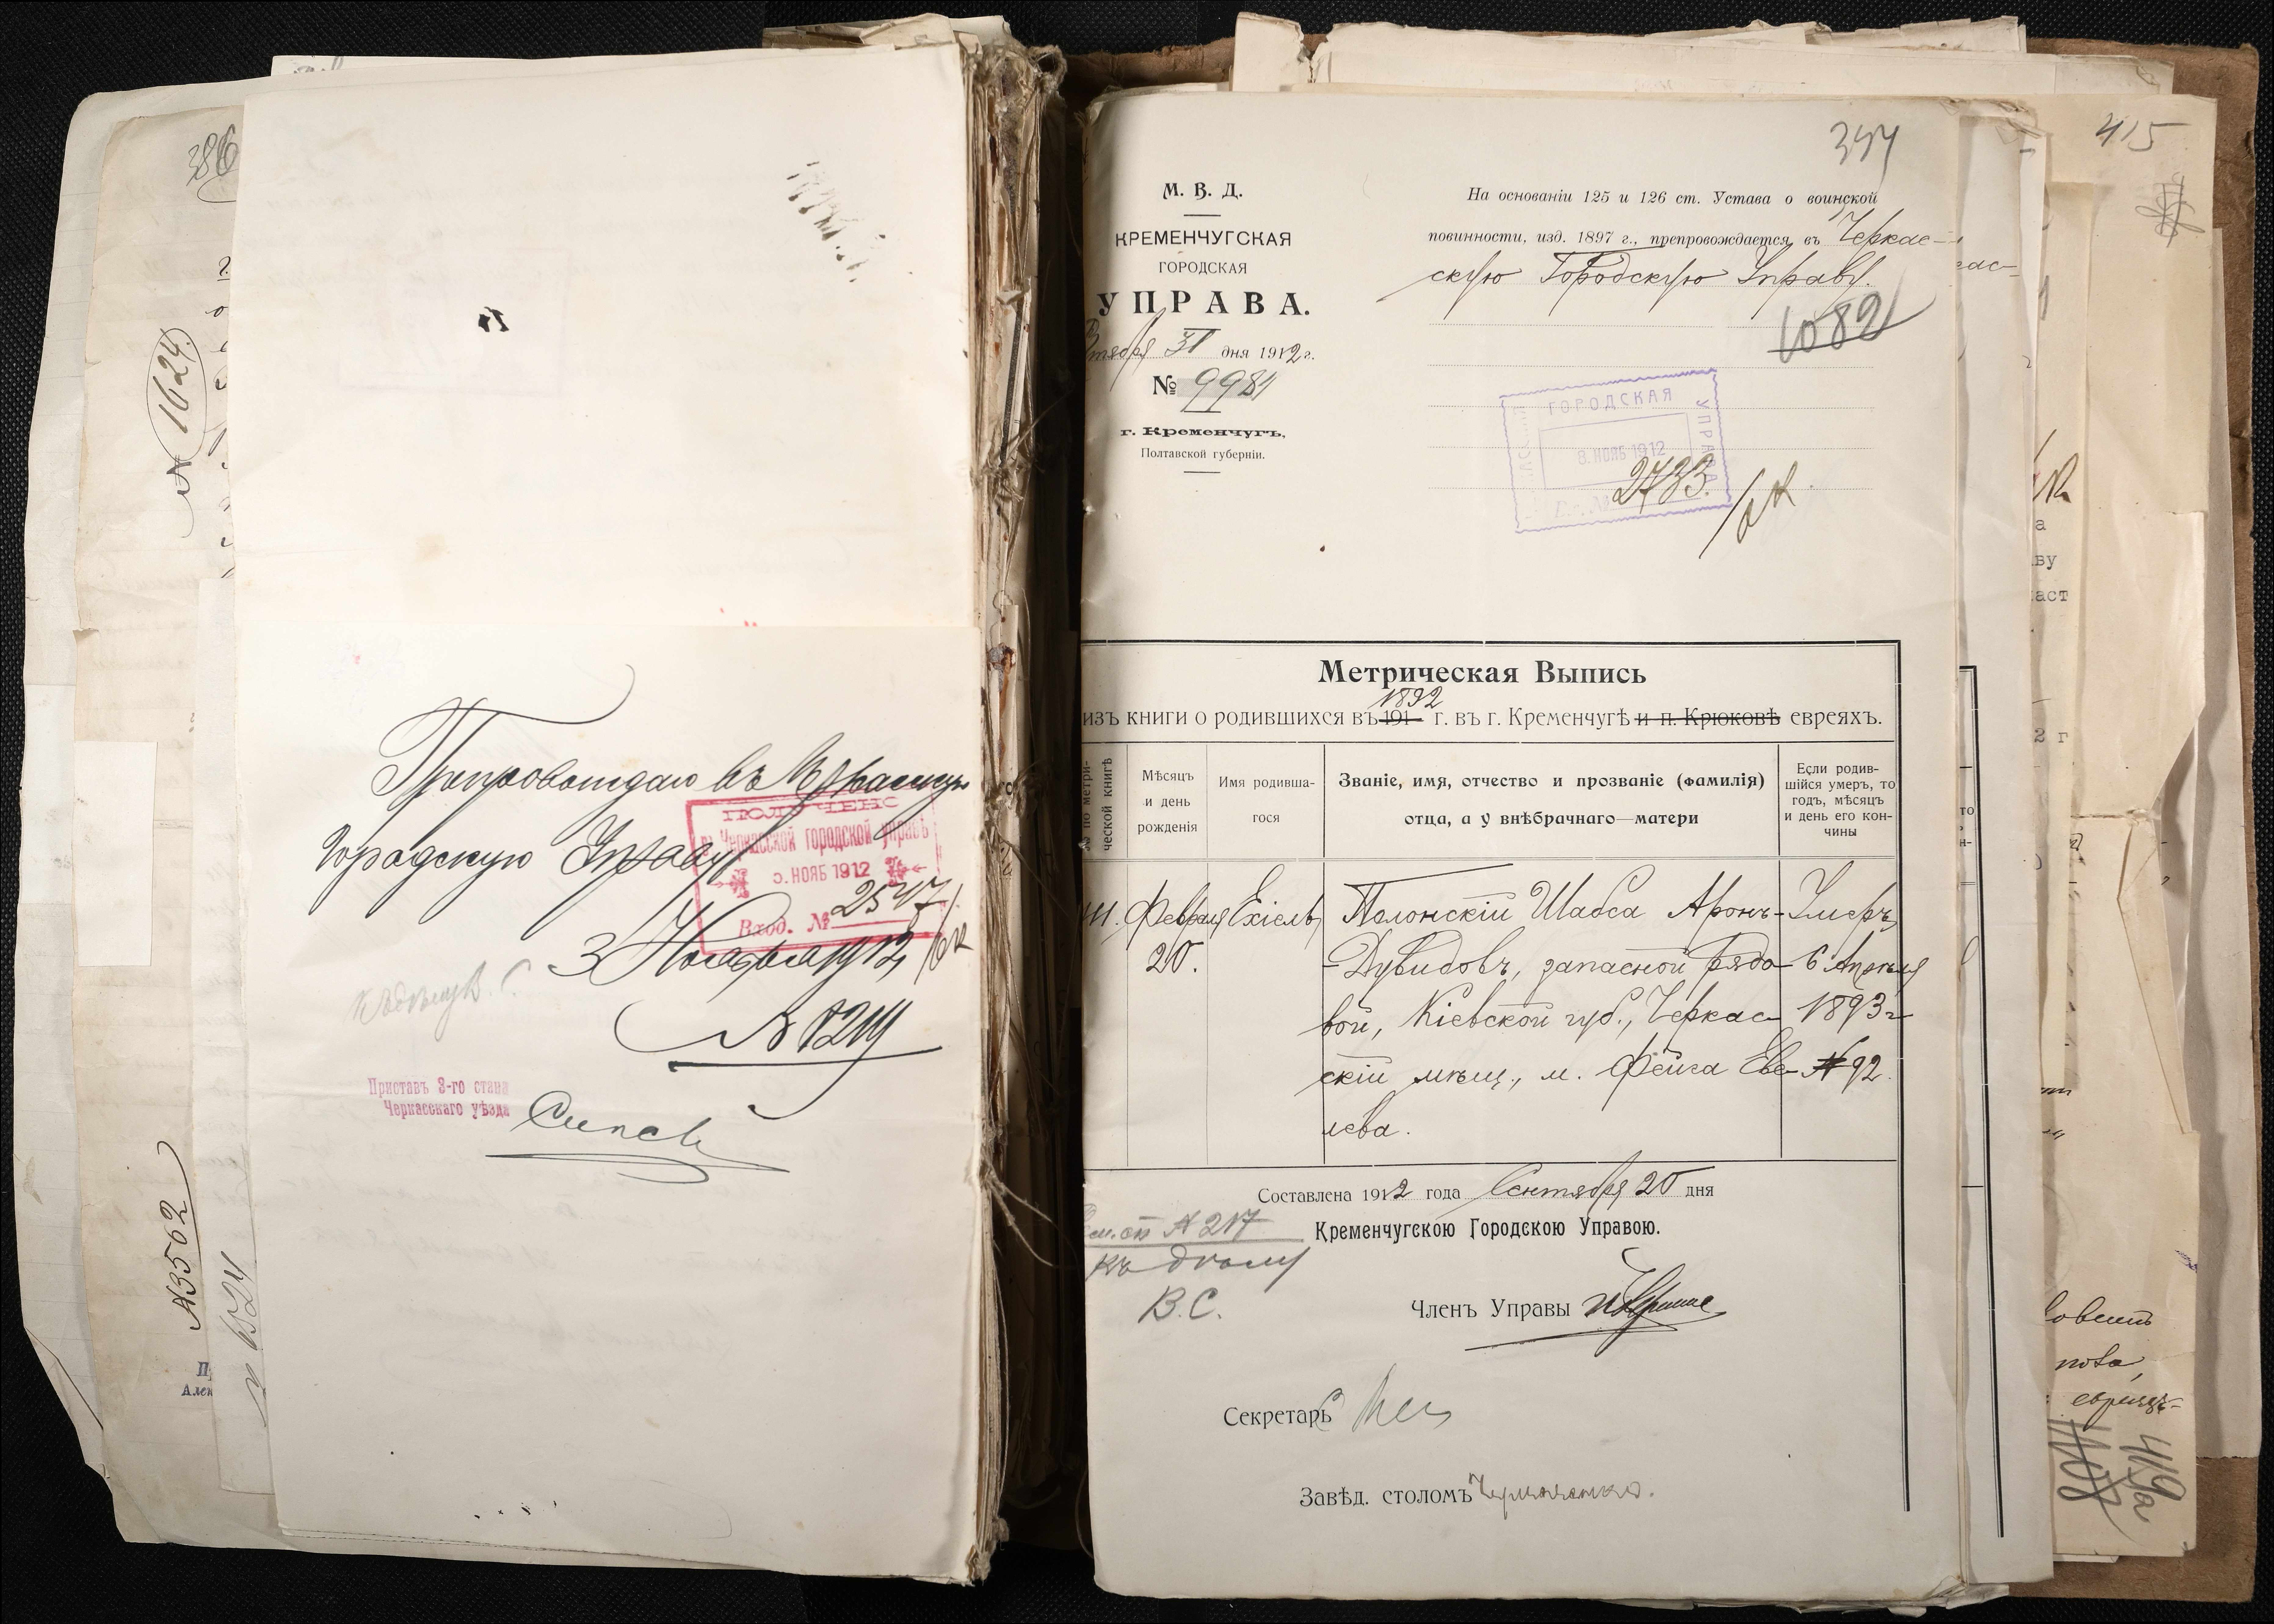 386
№ 1624.
№3562
№ 6524
Препровождаю въ Черкасскую
Городскую Управу
ПОЛУЧЕНО
въ Черкасской городской управѣ
НОЯБ 1912
Вход. № 2547
3 Ноября 1912
№ 8211
Приставъ 3-го стана
Черкасскаго уѣзда
394
М. В. Д.
КРЕМЕНЧУГСКАЯ
ГОРОДСКАЯ
УПРАВА.
31 дня 1912 г.
№ 9981
г. Кременчугъ,
Полтавской губерніи.
На основаніи 125 и 126 ст. Устава о воинской
повинности, изд. 1897 г., препровождается въ Черкас-
скую Городскую Управу.
1082
ГОРОДСКАЯ УПРАВА
8. НОЯБ 1912
2733.
Метрическая Выпись
изъ книги о родившихся въ 191 1892 г. въ г. Кременчугѣ и п. Крюковѣ евреяхъ.
№ по метри-
ческой книгѣ
Мѣсяцъ
и день
рожденія
Имя родивша-
гося
Званіе, имя, отчество и прозваніе (фамилія)
отца, а у внѣбрачнаго—матери
Если родив-
шійся умеръ, то
годъ, мѣсяцъ
и день его кон-
чины
Февраля Ехіель Полонскій Шабса Аронъ- Умеръ
20. -Дувидовъ, запасной рядо- 6 Апрѣля
вой, Кіевской губ., Черкас- 1893 г
скій мѣщ., м. Фейга Еве- № 92.
лева.
Составлена 1912 года Сентября 20 дня
Кременчугскою Городскою Управою.
№ 217
къ дѣлу
В.С.
Членъ Управы
Секретарь
Завѣд. столомъ
415
419